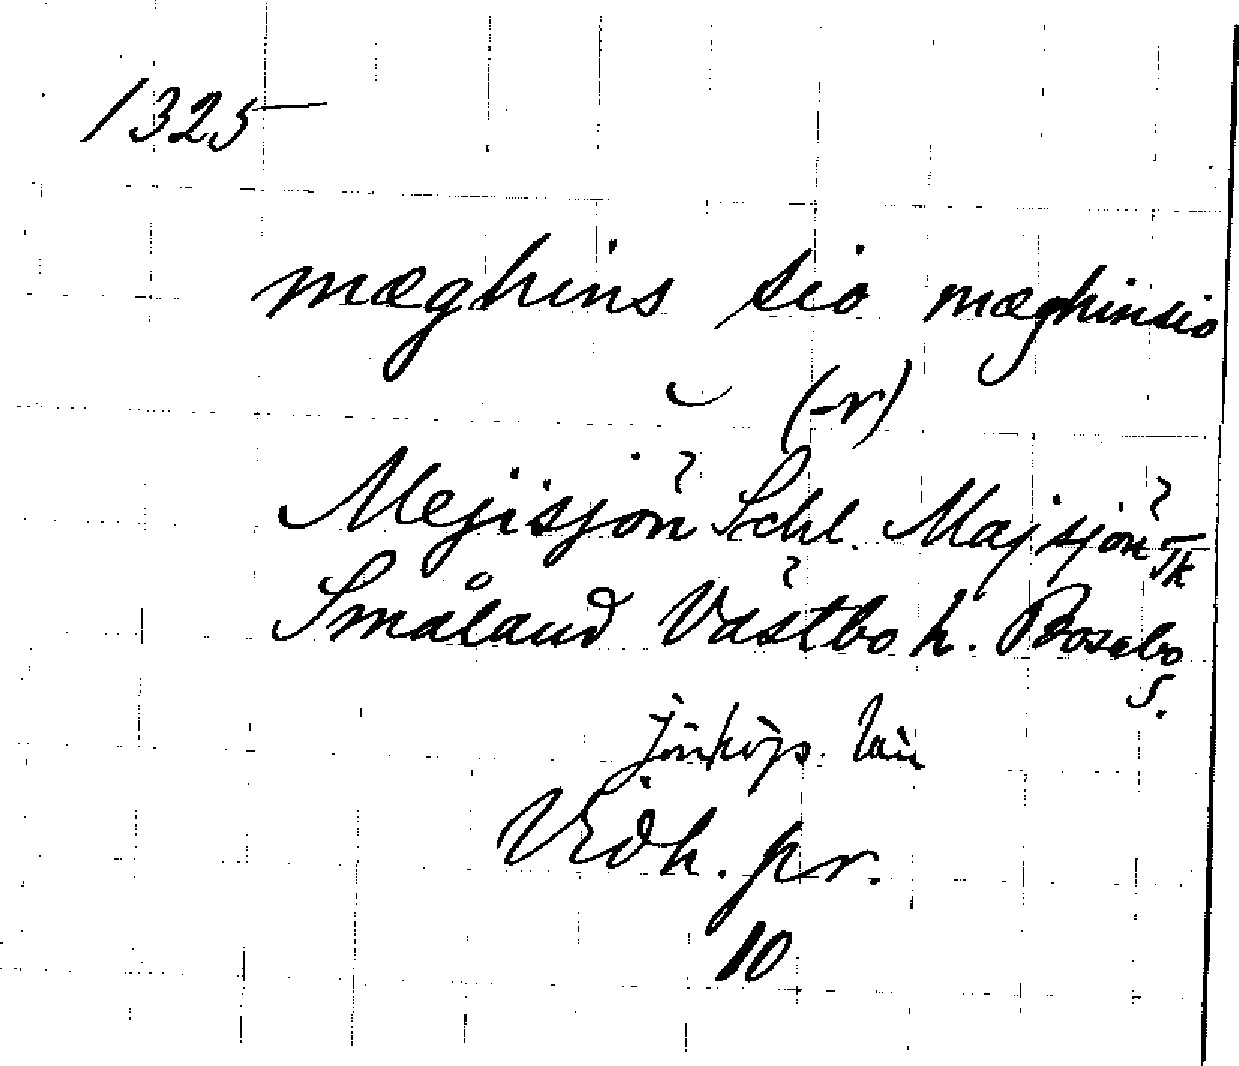 1325
mæghins sio mæghinsio
(-r)
Mejisjön Schl. Majsjön Tk
Småland Västbo h. Bosebo
s.
Jönköps. län
Vidh. pr.
10